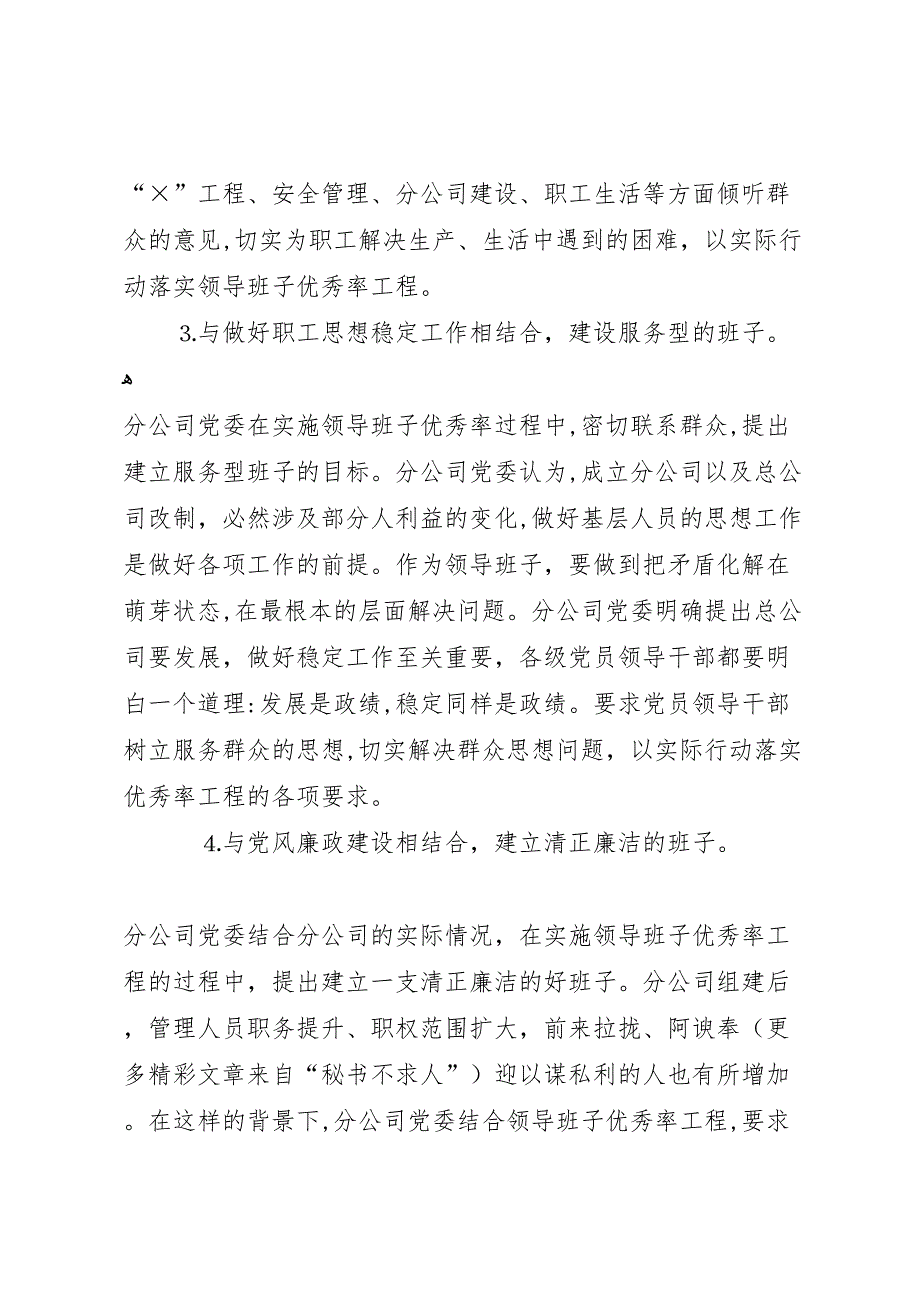 “×”工程、安全管理、分公司建设、职工生活等方面倾听群
众的意见,切实为职工解决生产、生活中遇到的困难，以实际行
动落实领导班子优秀率工程。
3.与做好职工思想稳定工作相结合，建设服务型的班子。
ﻫ
分公司党委在实施领导班子优秀率过程中,密切联系群众,提出
建立服务型班子的目标。分公司党委认为,成立分公司以及总公
司改制，必然涉及部分人利益的变化,做好基层人员的思想工作
是做好各项工作的前提。作为领导班子，要做到把矛盾化解在
萌芽状态,在最根本的层面解决问题。分公司党委明确提出总公
司要发展，做好稳定工作至关重要，各级党员领导干部都要明
白一个道理:发展是政绩,稳定同样是政绩。要求党员领导干部
树立服务群众的思想,切实解决群众思想问题，以实际行动落实
优秀率工程的各项要求。
4.与党风廉政建设相结合，建立清正廉洁的班子。
分公司党委结合分公司的实际情况，在实施领导班子优秀率工
程的过程中，提出建立一支清正廉洁的好班子。分公司组建后
，管理人员职务提升、职权范围扩大，前来拉拢、阿谀奉（更
多精彩文章来自“秘书不求人”）迎以谋私利的人也有所增加
。在这样的背景下,分公司党委结合领导班子优秀率工程,要求